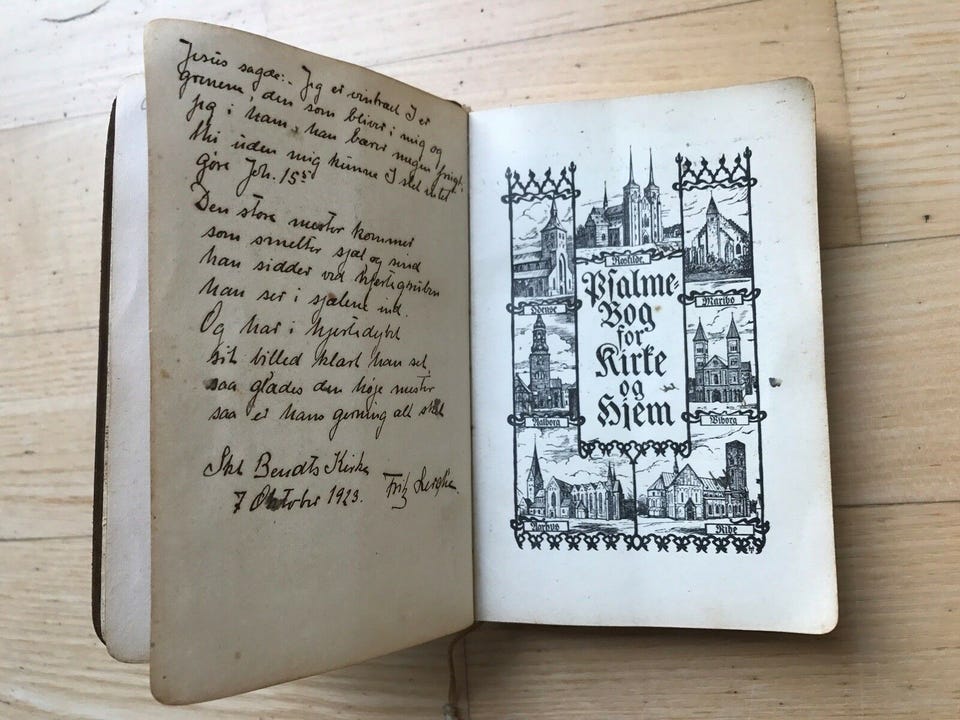 Jesus sagde:- Jeg er vintræet I er
grenene, den som bliver i mig og
jeg i ham, han bærer megen frugt,
thi uden mig kunne I slet intet
göre Joh. 15⁵
Den store mester kommer
som smelter sjæl og sind
han sidder ved hjertegruben
han ser i sjælene ind.
Og har i hjertedybet
sit billed klart han set
saa glædes den høje mester
saa er hans gerning alt sket
Skt Bendts Kirke
7 Oktober 1923.
Fritz
Roskilde
Odense
Maribo
Psalme-
Bog
for
Kirke
og
Hjem
Aalborg
Viborg
Aarhus
Ribe